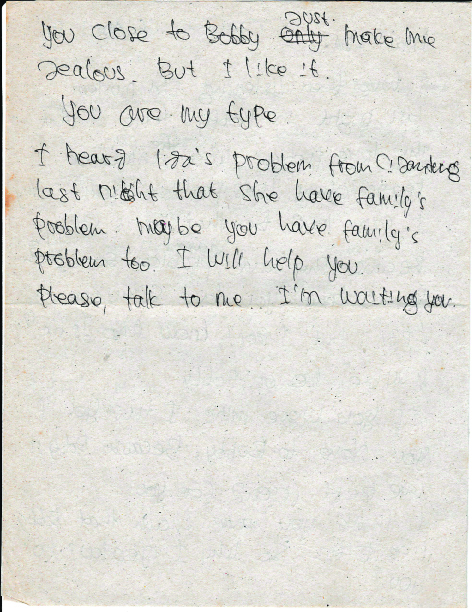 you close to Bobby just make me
Jealous. But I like it.
You are my type
I heard Iza's problem from
last night that she have family's
problem. maybe you have family's
problem too. I will help you.
please, talk to me. I'm waiting you.